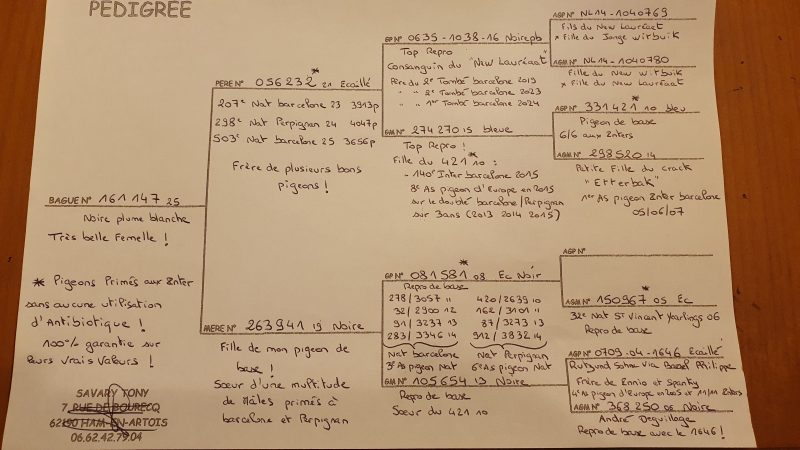 PEDIGREE
BAGUE N° 161 147 25
Noire plume blanche
Très belle Femelle !
* Pigeons Primés aux Inter
sans aucune utilisation
d'Antibiotique !
100% garantie sur
leurs vrais valeurs !
SAVARY TONY
7, RUE DE BOURECQ
62190 HAM-EN-ARTOIS
06.62.42.79.04
PERE N° 056232 * 21 Ecaillé
207e Nat barcelone 23 3913p
298e Nat Perpignan 24 4047p
503e Nat barcelone 25 3656p
Frère de plusieurs bons
pigeons !
MERE N° 263941 19 Noire
Fille de mon pigeon de
base !
Sœur d'une multitude
de Mâles primés à
barcelone et Perpignan
GP N° 0635 - 1038 - 16 Noire pb
Top Repro
Consanguin du "New Lauréaat"
Père du 2e Tombé barcelone 2019
" " 2e Tombé barcelone 2023
" " 1er Tombé barcelone 2024
GM N° 274270 15 bleue
Top Repro !
Fille du 421 * 10 :
- 140e Inter barcelone 2015
8e As pigeon d'Europe en 2015
sur le doublé barcelone/Perpignan
sur 3ans (2013 2014 2015)
GP N° 081581 * 08 Ec Noir
Repro de base
278/3057 11 420/2639 10
32/2900 12 162/3101 11
91/3237 13 87/3273 13
283/3346 14 912/3832 14
Nat barcelone Nat Perpignan
3e As pigeon Nat 6e As pigeon Nat
GM N° 105654 13 Noire
Repro de base
Soeur du 421 10
AGP N° NL14 - 1040769
Fils du New Lauréaat
x Fille du Jonge Witbuik
AGM N° NL14 - 1040780
Fille du New Witbuik
x Fille du New Laureaat
AGP N° 331421 * 10 bleu
Pigeon de base
6/6 aux Inters
AGM N° 298520 14
Petite Fille du crack
"Etterbak"
1er As pigeon Inter barcelone
05/06/07
AGP N°
AGM N° 150967 * 05 Ec
32e Nat ST Vincent Yearlings 06
Repro de base
AGP N° 0709 - 04 - 1646 Ecaillé
Frère de Ennio et Spanky
4e As pigeon d'Europe en 2005 et 11/11 Inters
AGM N° 368250 05 Noire
André Deguillage
Repro de base avec le 1646 !